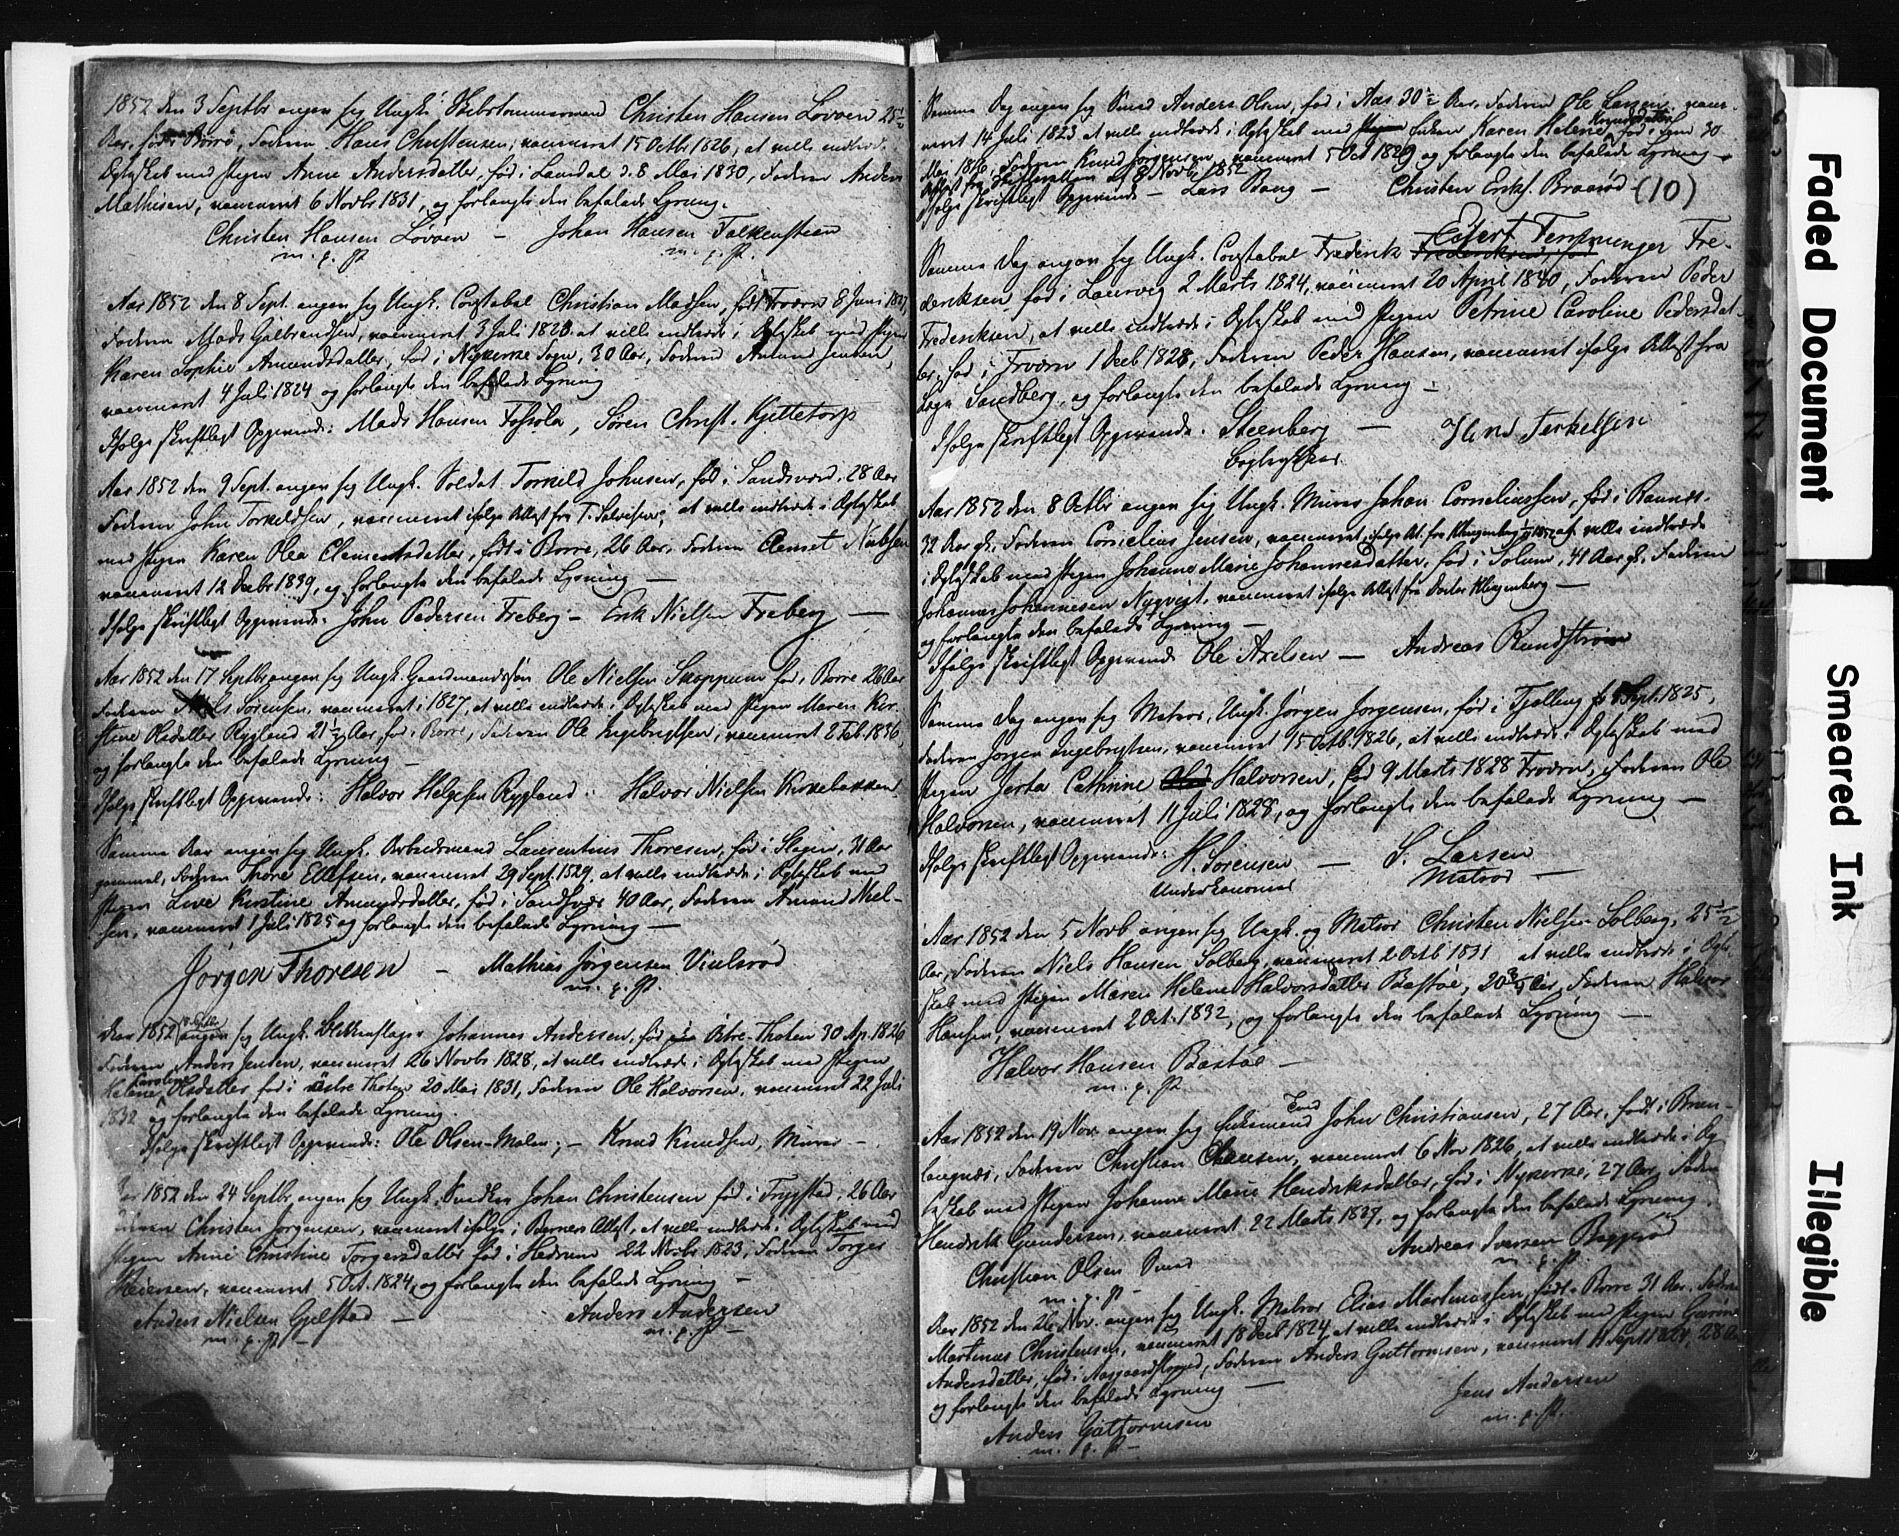 1852 den 3 Septbr angav sig Ungk. Christen Hansen Løvøen 25 1/2
Aar, født Borrø, Faderen Hans Christensen, vaccineret 15 Octbr 1826, at ville indtræde i
Ægteskab med Pigen Anne Andersdatter, fød i Laurdal d. 8 Mai 1830, Faderen Anders
Mathisen, vaccineret 6 Novbr 1831, og forlangte den befalede Lysning.
Christen Hansen Løvøen – Johan Hansen Falkensteen
m. p. P. m. p. P.
Aar 1852 den 8 Sept. angav sig Ungk. Constabel Christian Madsen, født 8 Juni 1827,
Faderen Mads Gulbrandsen, vaccineret 3 Juli 1828 at ville indtræde i Ægteskab med Pigen
Karen Sophie Amundsdatter, fød i Nykirke Sogn, 30 Aar, Faderen Amund Jensen,
vaccineret 4 Juli 1824 og forlangte den befalede Lysning
Ifølge skriftligt Opgivende: Mads Hansen Søren Christ. Kjettetorp
Aar 1852 den 9 Sept. angav sig Ungk. Soldat Torkild Johnsen, fød i 28 Aar
Faderen John Torkeldsen, vaccineret ifølge Attest fra at ville indtræde i Ægteskab
med Pigen Karen Olea Clemetsdatter, født i Borre, 26 Aar, Faderen Clemet
vaccineret 12 Decbr 1839, og forlangte den befalede Lysning —
Ifølge skriftligt Opgivende: John Pedersen Freberg – Erik Nielsen Freberg —
Aar 1852 den 17 Septbr angav sig Ungk. Gaardmandssøn Ole Nielsen Skoppum fød i Borre 26 Aar
Faderen Niels Sørensen, vaccineret i 1827, at ville indtræde i Ægteskab med Pigen Maren Kir-
stine Olsdatter Rygland 21 1/2 Aar, fød i Borre, Faderen Ole Ingebrigtsen, vaccineret 2 Feb. 1836,
og forlangte den befalede Lysning —
Ifølge skriftligt Opgivende: Halvor Helgesen Rygland : Halvor Nielsen Kirkebakken
Samme Dag angav sig Ungk. Arbeidsmand Laurentius Thoresen, fød i Slagen, 31 Aar
gammel, Faderen Thore Ellefsen, vaccineret 29 Sept. 1829, at ville indtræde i Ægteskab med
Pigen Live Kirstine Amundsdatter, fød i 40 Aar, Faderen Amund Niel-
sen, vaccineret 1 Juli 1825 og forlangte den befalede Lysning —
Jørgen Thoresen – Mathias Jørgensen
m. p. P.
Aar 1852 angav sig Ungk. Johannes Andersen, fød Østre-Thoten 30 Ap. 1826
Faderen Anders Jensen, vaccineret 26 Novbr 1828, at ville indtræde i Ægteskab med Pigen
Karoline
Helene Olsdatter fød i østre Thoten 20 Mai 1831, Faderen Ole Halvorsen, vaccineret 22 Juli
1832 og forlangte den befalede Lysning.
Ifølge skriftligt Opgivende: Ole Olsen – Knud Knudsen, Murer –
1852 den 24 Septbr angav sig Ungk. Johan Christensen fød i Trygstad, 26 Aar
Faderen Christen Jørgensen, vaccineret ifølge Attest, at ville indtræde i Ægteskab med
Pigen Anne Christine Torgersdatter fød i 22 Novbr 1823, Faderen Torger
vaccineret 5 Oct. 1824, og forlangte den befalede Lysning —
Anders Nielsen – Anders Andersen
m. p. P. – m. p. P. –
Samme Dag angav sig Smed Anders Olsen, fød i Aas 30 1/2 Aar, Faderen Ole Larsen, vacci-
neret 14 Juli 1823 at ville indtræde i Ægteskab med Enken Karen Helene Knudsdatter, fød i 30
Mai 1826, Faderen Knud Jørgensen, vaccineret 5 Oct 1829 og forlangte den befalede Lysning —
8 Novbr 1852
Ifølge skriftligt Opgivende – Lars Bang – Christen Eriks. Braarød (10)
Samme Dag angav sig Ungk. Constabel Frederik Fre-
deriksen fød i Laurvig 2 Marts 1824, vaccineret 20 April 1840, Faderen Peder
Frederiksen, at ville indtræde i Ægteskab med Pigen Petrine Caroline Pedersdat-
ter, fød i 1 Decb 1828, Faderen Peder Hansen, vaccineret ifølge Attest fra
Læge Sandberg, og forlangte den befalede Lysning –
Ifølge skriftligt Opgivende: Steenberg — Terkelsen
Bogtrykker
Aar 1852 den 8 Octbr angav sig Ungk. Murer Johan Corneliussen, fød i
32 Aar gl. Faderen Cornelius Jensen, vaccineret ifølge At. fra Klingenberg at ville indtræde
i Ægteskab med Pigen Johanne Marie Johannesdatter, fød i Solum, 41 Aar gl., Faderen
Johannes Johannesen vaccineret ifølge Attest fra Doctor Klingenberg —
og forlangte den befalede Lysning —
Ifølge skriftligt Opgivende Ole Axelsen — Andreas Rundstrøm
Samme Dag angav sig Matros, Ungk. Jørgen Jørgensen, fød i Tjølling Sept. 1825,
Faderen Jørgen Ingebrigtsen, vaccineret 15 Octb. 1826, at ville indtræde i Ægteskab med
Pigen Jerta Cathrine Halvorsen, fød 9 Marts 1828 Faderen Ole
Halvorsen, vaccineret 11 Juli 1828, og forlangte den befalede Lysning —
Ifølge skriftligt Opgivende: H. Sørensen — S. Larsen
Underkanoner Matros —
Aar 1852 den 5 Novb angav sig Ungk. og Matros Christen Nielsen Solberg, 25 1/2
Aar, Faderen Niels Hansen Solberg, vaccineret 2 Octb 1831 at ville indtræde i Ægte-
skab med Pigen Maren Helene Halvorsdatter Bastøe, 20 3/4 Aar, Faderen Halvor
Hansen, vaccineret 2 Oct. 1832, og forlangte den befalede Lysning —
Halvor Hansen Bastøe —
m. p. P.
Aar 1852 den 19 Nov. angav sig Enkemand John Christiansen, 27 Aar, født i
Faderen Christian vaccineret 6 Nov 1826, at ville indtræde i Æg-
teskab med Pigen Johanne Marie Hendriksdatter, fød i Nykirke, 27 Aar, Faderen
Hendrik Gundersen, vaccineret 22 Marts 1827, og forlangte den befalede Lysning.
Christian Olsen Andreas Iversen
m. p. P. – m. p. P.
Aar 1852 den 26 Nov. angav sig Ungk. Matros Elias Martinussen, født i Borre 31 Aar, Faderen
Martinus Christensen, vaccineret 18 Decb 1824, at ville indtræde i Ægteskab med Pigen
Andersdatter, fød i Aasgaardstrand, Faderen Anders Guttormsen, vaccineret 28 Aar
og forlangte den befalede Lysning —
Anders Guttormsen Jens Andersen
m. p. P. – m. p. P.
Faded Document
Smeared Ink
Illegible